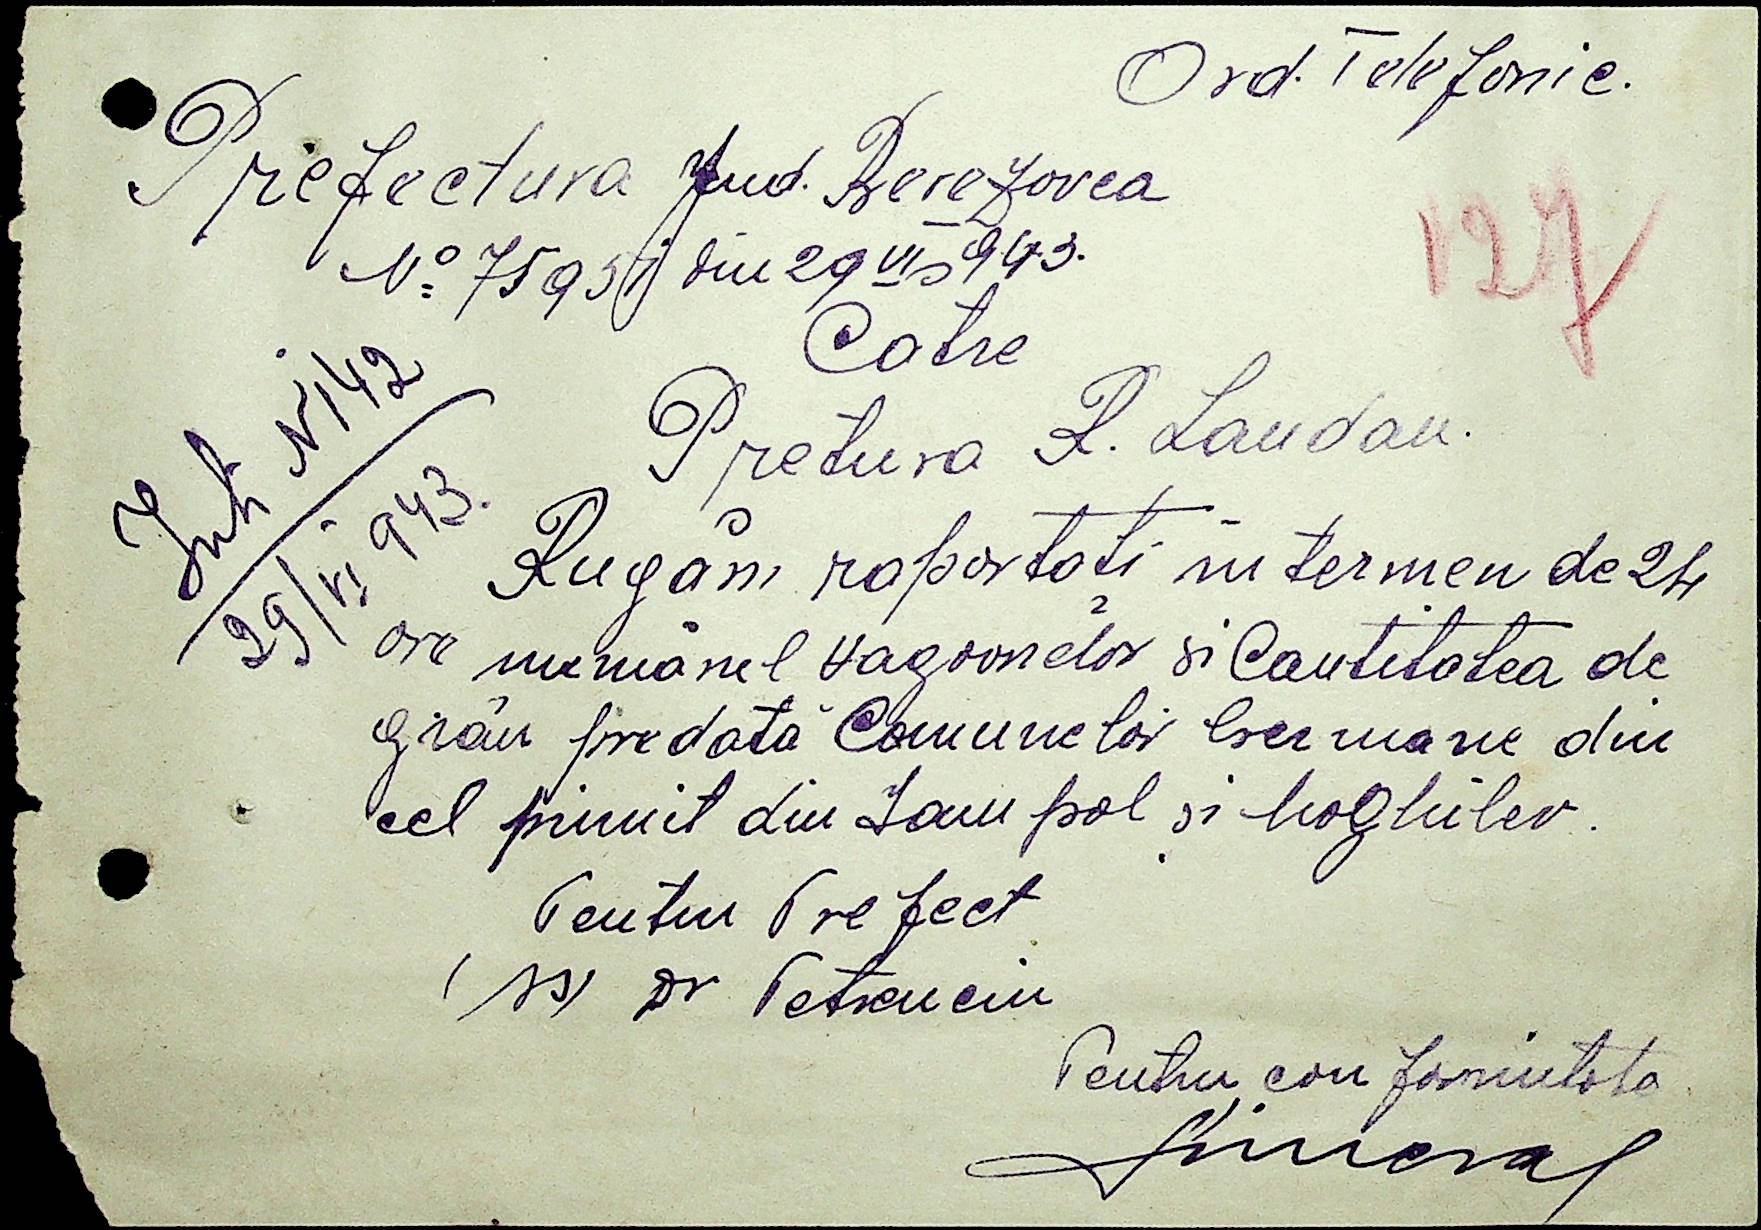 Ord. Telefonic.
Prefectura Jud. Berezovca
127
No 7595 din 29 VI 943.
Catre
Nr 142
29/VI 943.
Pretura R. Landau.
Rugăm raportati in termen de 24
ore numărul vagoanelor si Cantitatea de
grâu predată Comunelor Germane din
cel primit din Iampol si Moghilev.
Pentru Prefect
(ss) Dr Petrenciu
Pentru conformitate